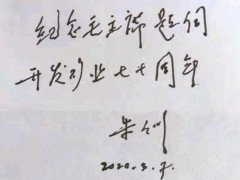 纪念毛主席题词
开发矿业七十周年
朱训
2020.3.7.